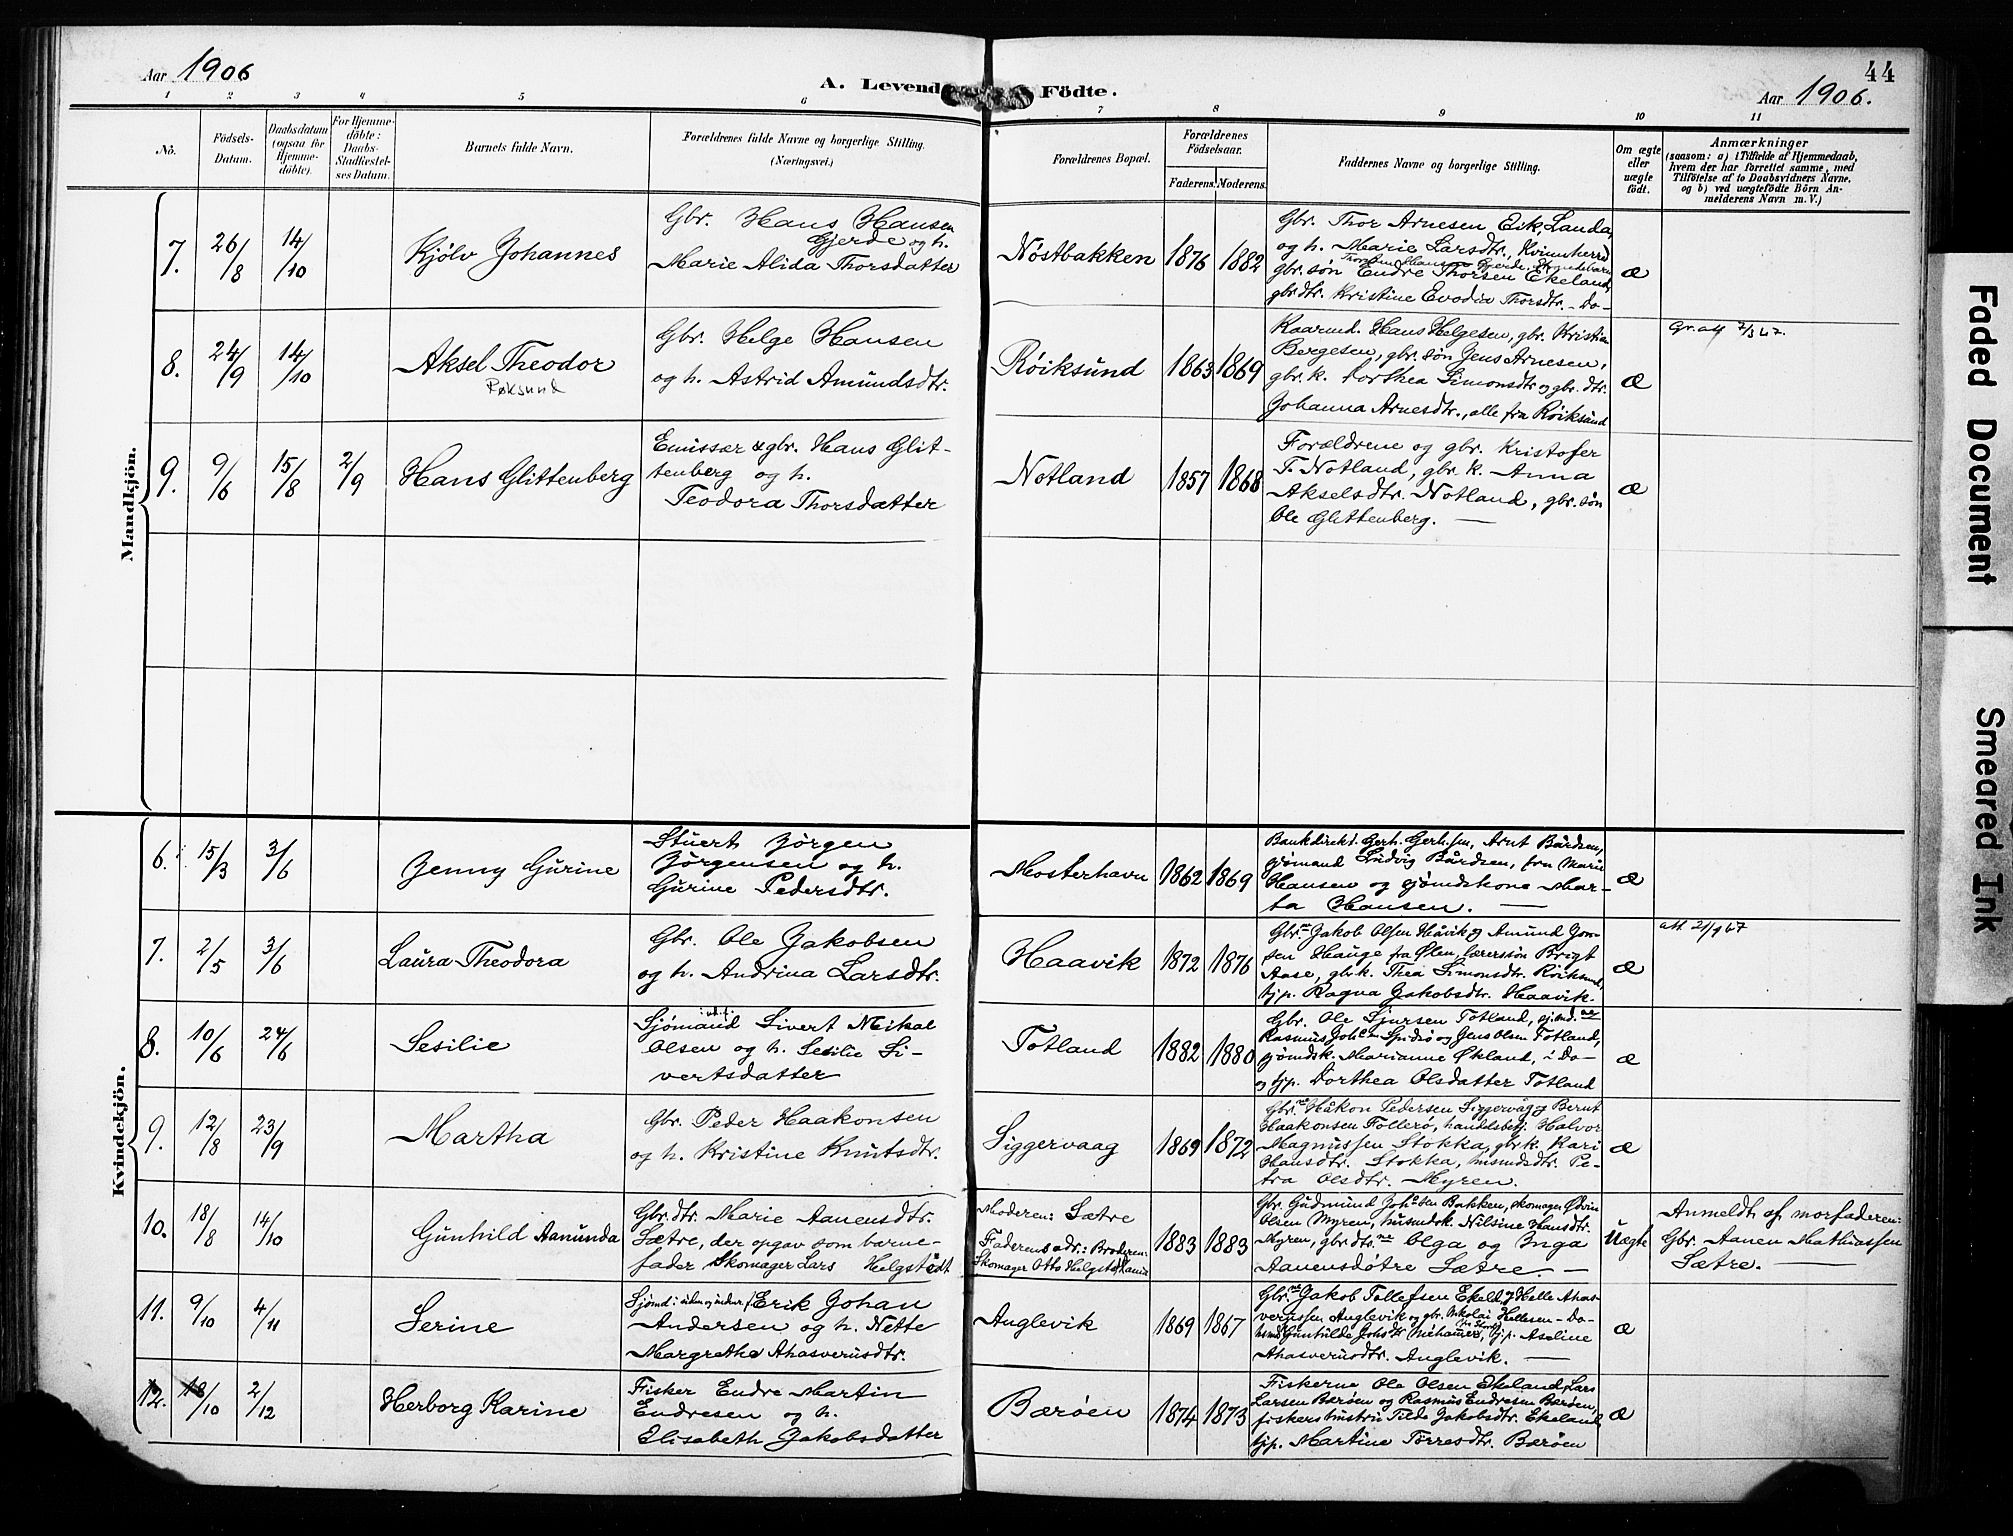 Aar 1906
A. Levende Födte.
44
Aar 1906.
1 2 3 4 5 6 7 8 9 10 11
No.
Födsels-
Datum.
Daabsdatum
(ogsaa for
Hjemme-
döbte).
For Hjemme-
döbte:
Daabs-
Stadfæstel-
ses Datum.
Barnets fulde Navn.
Forældrenes fulde Navne og borgerlige Stilling.
(Næringsvei.)
Forældrenes Bopæl.
Forældrenes
Födselsaar.
Faderens. Moderens.
Faddernes Navne og borgerlige Stilling.
Om ægte
eller
uægte
født.
Anmærkninger
(saasom: a) i Tilfælde af Hjemmedaab,
hvem der har forrettet samme, med
Tilføielse af to Daabsvidners Navne,
og b) ved uægtefödte Börn An-
melderens Navn m. V.)
Mandkjön.
7. 26/8 14/10
Kjölv Johannes
Gbr. Hans Hansen
Gjerde og h.
Marie Alida Thorsdatter
Nöstbakken 1876 1882
Gbr. Thor Arnesen Eik, Landa,
og h. Marie Larsdtr., Kvinnherred
gbr. søn Endre Thorsen Ekeland,
gbrdtr. Kristine Evodia Thorsdtr. - Do -
Æ
8. 24/9 14/10
Aksel Theodor
Røksund
Gbr. Helge Hansen
og h. Astrid Amundsdtr.
Röiksund 1863 1869
Kaarmd. Hans Helgesen, gbr. Kristian
Bergesen, gbr. søn Jens Arnesen,
gbr. k. Dorthea Simonsdtr og gbr. dtr.
Johanna Arnesdtr., alle fra Röiksund
Æ
9. 9/6 15/8 2/9
Hans Glittenberg
Emissær & gbr. Hans Glit-
tenberg og h.
Teodora Thorsdatter
Notland 1857 1868
Forældrene og gbr. Kristofer
T. Notland, gbr. k. Anna
Akselsdtr. Notland, gbr. søn
Ole Glittenberg. —
Æ
Kvindekjön.
6. 15/3 3/6
Jenny Gurine
Stuert Jörgen
Jörgensen og h.
Gurine Pedersdtr.
Mosterhavn 1862 1869
Bankdirekt. Gerh. Gerhsen, Arnt Bårdsen,
sjömand Ludvig Bårdsen, fru Marie
Hansen og sjömdskone Mar-
ta Hansen. —
Æ
7. 2/5 3/6
Laura Theodora
Gbr. Ole Jakobsen
og h. Andrina Larsdtr.
Haavik 1872 1876
Gbr.ne Jakob Olsen Håvik og Amund Jon-
sen Hauge fra Ølen, lærerssön Brigt
Aase, gbrk. Thea Simonsdtr. Röiksund,
tjp. Ragna Jakobsdtr. Haavik.
Æ
8. 10/6 24/6
Sesilie
Sjømand Sivert Mikal
Olsen og h. Sesilie Si-
vertsdatter
Totland 1882 1880
Gbr. Ole Sjursen Totland, sjømd.ne
Rasmus Johsen Spidsö og Jens Olsen Totland,
sjömdsk. Marianne Økland, i Do -
og tjp. Dorthea Olsdatter Totland
Æ
9. 12/8 23/9
Martha
Gbr. Peder Haakonsen
og h. Kristine Knutsdtr.
Siggervaag 1869 1872
Gbr.ne Håkon Pedersen Siggervåg og Bernt
Haakonsen Follerö, handelsbetj. Halvor
Magnussen Stokka, gbrk. Kari
Hansdtr. Stokka, husmdsdtr. Pe-
tra Olsdtr. Myren.
Æ
10. 18/8 14/10
Gunhild Aanunda
Gbr. dtr. Marie Aanensdtr.
Sætre, der opgav som barne-
fader Skomager Lars Helgstedt
Moderen: Sætre
Faderens adr.: Broderen:
Skomager Otto Helgstedt,
1883 1883
Gbr. Gudmund Johsen Bakken, skomager Edvin
Olsen Myren, husmdsk. Nilsine Hansdtr.
Myren, gbrdtr.ne Olga og Inga
Aanensdøtre Sætre. —
Uægte
Anmeldt af morfaderen:
Gbr. Aanen Mathiassen
Sætre. —
11. 9/10 4/11
Serine
Sjömd: Erik Johan
Andersen og h. Nette
Margrethe Ahasverusdtr.
Anglevik 1869 1867
Gbr.ne Jakob Tollefsen Ekeld og Helle Ahas-
verussen Anglevik og gbr. Nikolai Hellesen - Do -
Gunhilde Johsdtr. tjp. Aseline
Ahasverusdtr. Anglevik. —
Æ
12. 18/10 2/12
Herborg Karine
Fisker Endre Martin
Endresen og h.
Elisabeth Jakobsdatter
Bæröen 1874 1873
Fiskerne Ole Olsen Ekeland, Lars
Larsen Bæröen og Rasmus Endresen Bæröen,
fiskers hustru Tilda Jakobsdtr. Ekeland
tjp. Martine Torresdtr. Bæröen
Æ
Faded Document
Smeared Ink